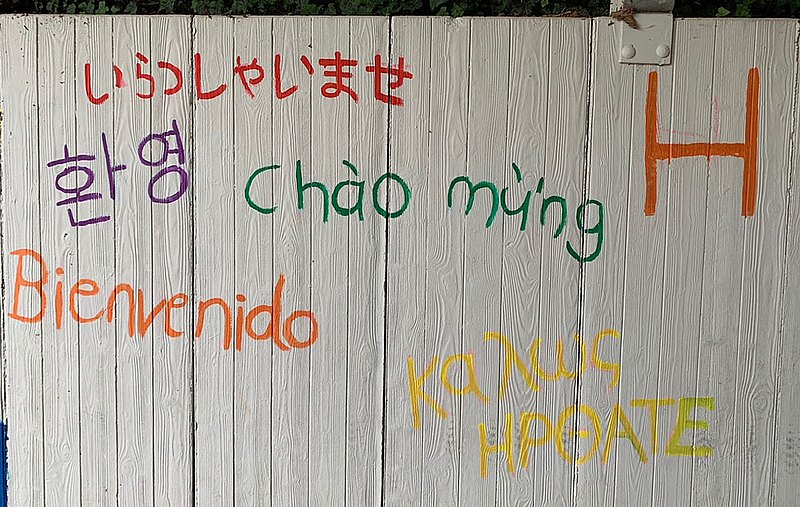 いらっしゃいませ
환영
chào mừng
H
Bienvenido
καλως
ΗΡΘΑΤΕ